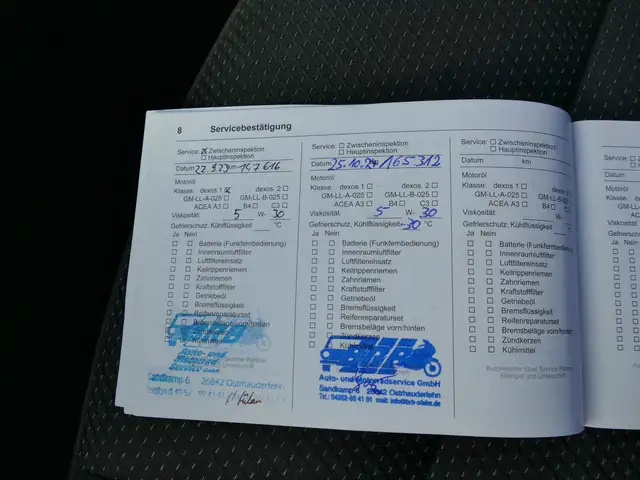 8 Servicebestätigung
Service: ☒ Zwischeninspektion
☐ Hauptinspektion
Datum 22.5.23 km 147616
Motoröl
Klasse: dexos 1 ☒ dexos 2 ☐
GM-LL-A-025 ☐ GM-LL-B-025 ☐
ACEA A3 ☐ B4 ☐ C3 ☐
Viskosität: 5 W- 30
Gefrierschutz, Kühlflüssigkeit °C
Ja Nein
☐ ☐ Batterie (Funkfernbedienung)
☐ ☐ Innenraumluftfilter
☐ ☐ Luftfiltereinsatz
☐ ☐ Keilrippenriemen
☐ ☐ Zahnriemen
☐ ☐ Kraftstofffilter
☐ ☐ Getriebeöl
☐ ☐ Bremsflüssigkeit
☐ ☐ Reifenreparaturset
☐ ☐ Bremsbeläge vorn/hinten
Auto- und
Motorrad
Service GmbH
Sandkamp 6 26842 Ostrhauderfehn
Service: ☐ Zwischeninspektion
☐ Hauptinspektion
Datum 25.10.24 165312
Motoröl
Klasse: dexos 1 ☐ dexos 2 ☐
GM-LL-A-025 ☐ GM-LL-B-025 ☐
ACEA A3 ☐ B4 ☐ C3 ☐
Viskosität: 5 W- 30
Gefrierschutz, Kühlflüssigkeit -30 °C
Ja Nein
☐ ☐ Batterie (Funkfernbedienung)
☐ ☐ Innenraumluftfilter
☐ ☐ Luftfiltereinsatz
☐ ☐ Keilrippenriemen
☐ ☐ Zahnriemen
☐ ☐ Kraftstofffilter
☐ ☐ Getriebeöl
☐ ☐ Bremsflüssigkeit
☐ ☐ Reifenreparaturset
☐ ☐ Bremsbeläge vorn/hinten
☐ ☐ Zündkerzen
Auto- und Motorradservice GmbH
Sandkamp 6 26842 Ostrhauderfehn
Service: ☐ Zwischeninspektion
☐ Hauptinspektion
Datum km
Motoröl
Klasse: dexos 1 ☐ dexos 2 ☐
GM-LL-A-025 ☐ GM-LL-B-025 ☐
ACEA A3 ☐ B4 ☐ C3 ☐
Viskosität: W-
Gefrierschutz, Kühlflüssigkeit °C
Ja Nein
☐ ☐ Batterie (Funkfernbedienung)
☐ ☐ Innenraumluftfilter
☐ ☐ Luftfiltereinsatz
☐ ☐ Keilrippenriemen
☐ ☐ Zahnriemen
☐ ☐ Kraftstofffilter
☐ ☐ Getriebeöl
☐ ☐ Bremsflüssigkeit
☐ ☐ Reifenreparaturset
☐ ☐ Bremsbeläge vorn/hinten
☐ ☐ Zündkerzen
☐ ☐ Kühlmittel
Autorisierter Opel Service Partner
Stempel und Unterschrift